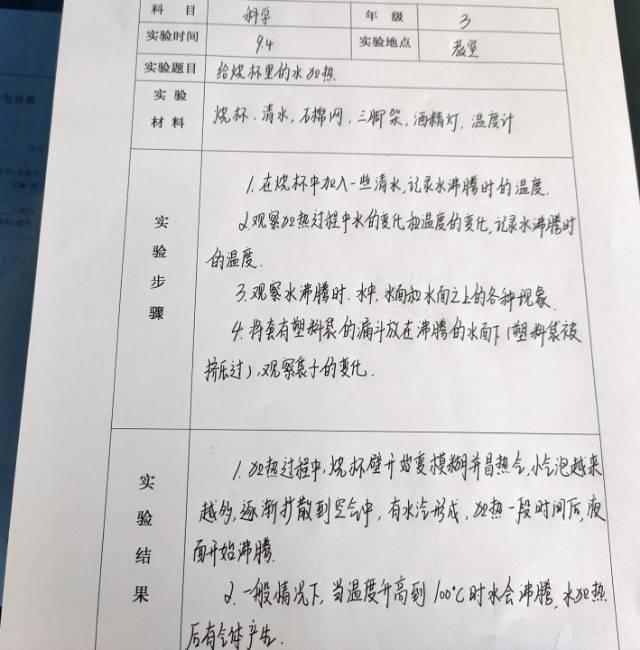 科 目 科学 年 级 3
实验时间 9.4 实验地点 教室
实验题目 给烧杯里的水加热.
实 验
材 料 烧杯、清水,石棉网,三脚架,酒精灯.温度计
实验步骤
1.在烧杯中加入一些清水,记录水沸腾时的温度.
2.观察加热过程中水的变化和温度的变化,记录水沸腾时
的温度.
3.观察水沸腾时.水中,水面和水面之上的各种现象.
4.将套有塑料袋的漏斗放在沸腾的水面下(塑料袋被
挤压过),观察袋子的变化.
实验结果
1.加热过程中,烧杯壁开始变模糊并冒热气,小气泡越来
越多,逐渐扩散到空气中,有水汽形成,加热一段时间后,液
面开始沸腾.
2.一般情况下,当温度升高到100°C时水会沸腾.水加热
后有气体产生.